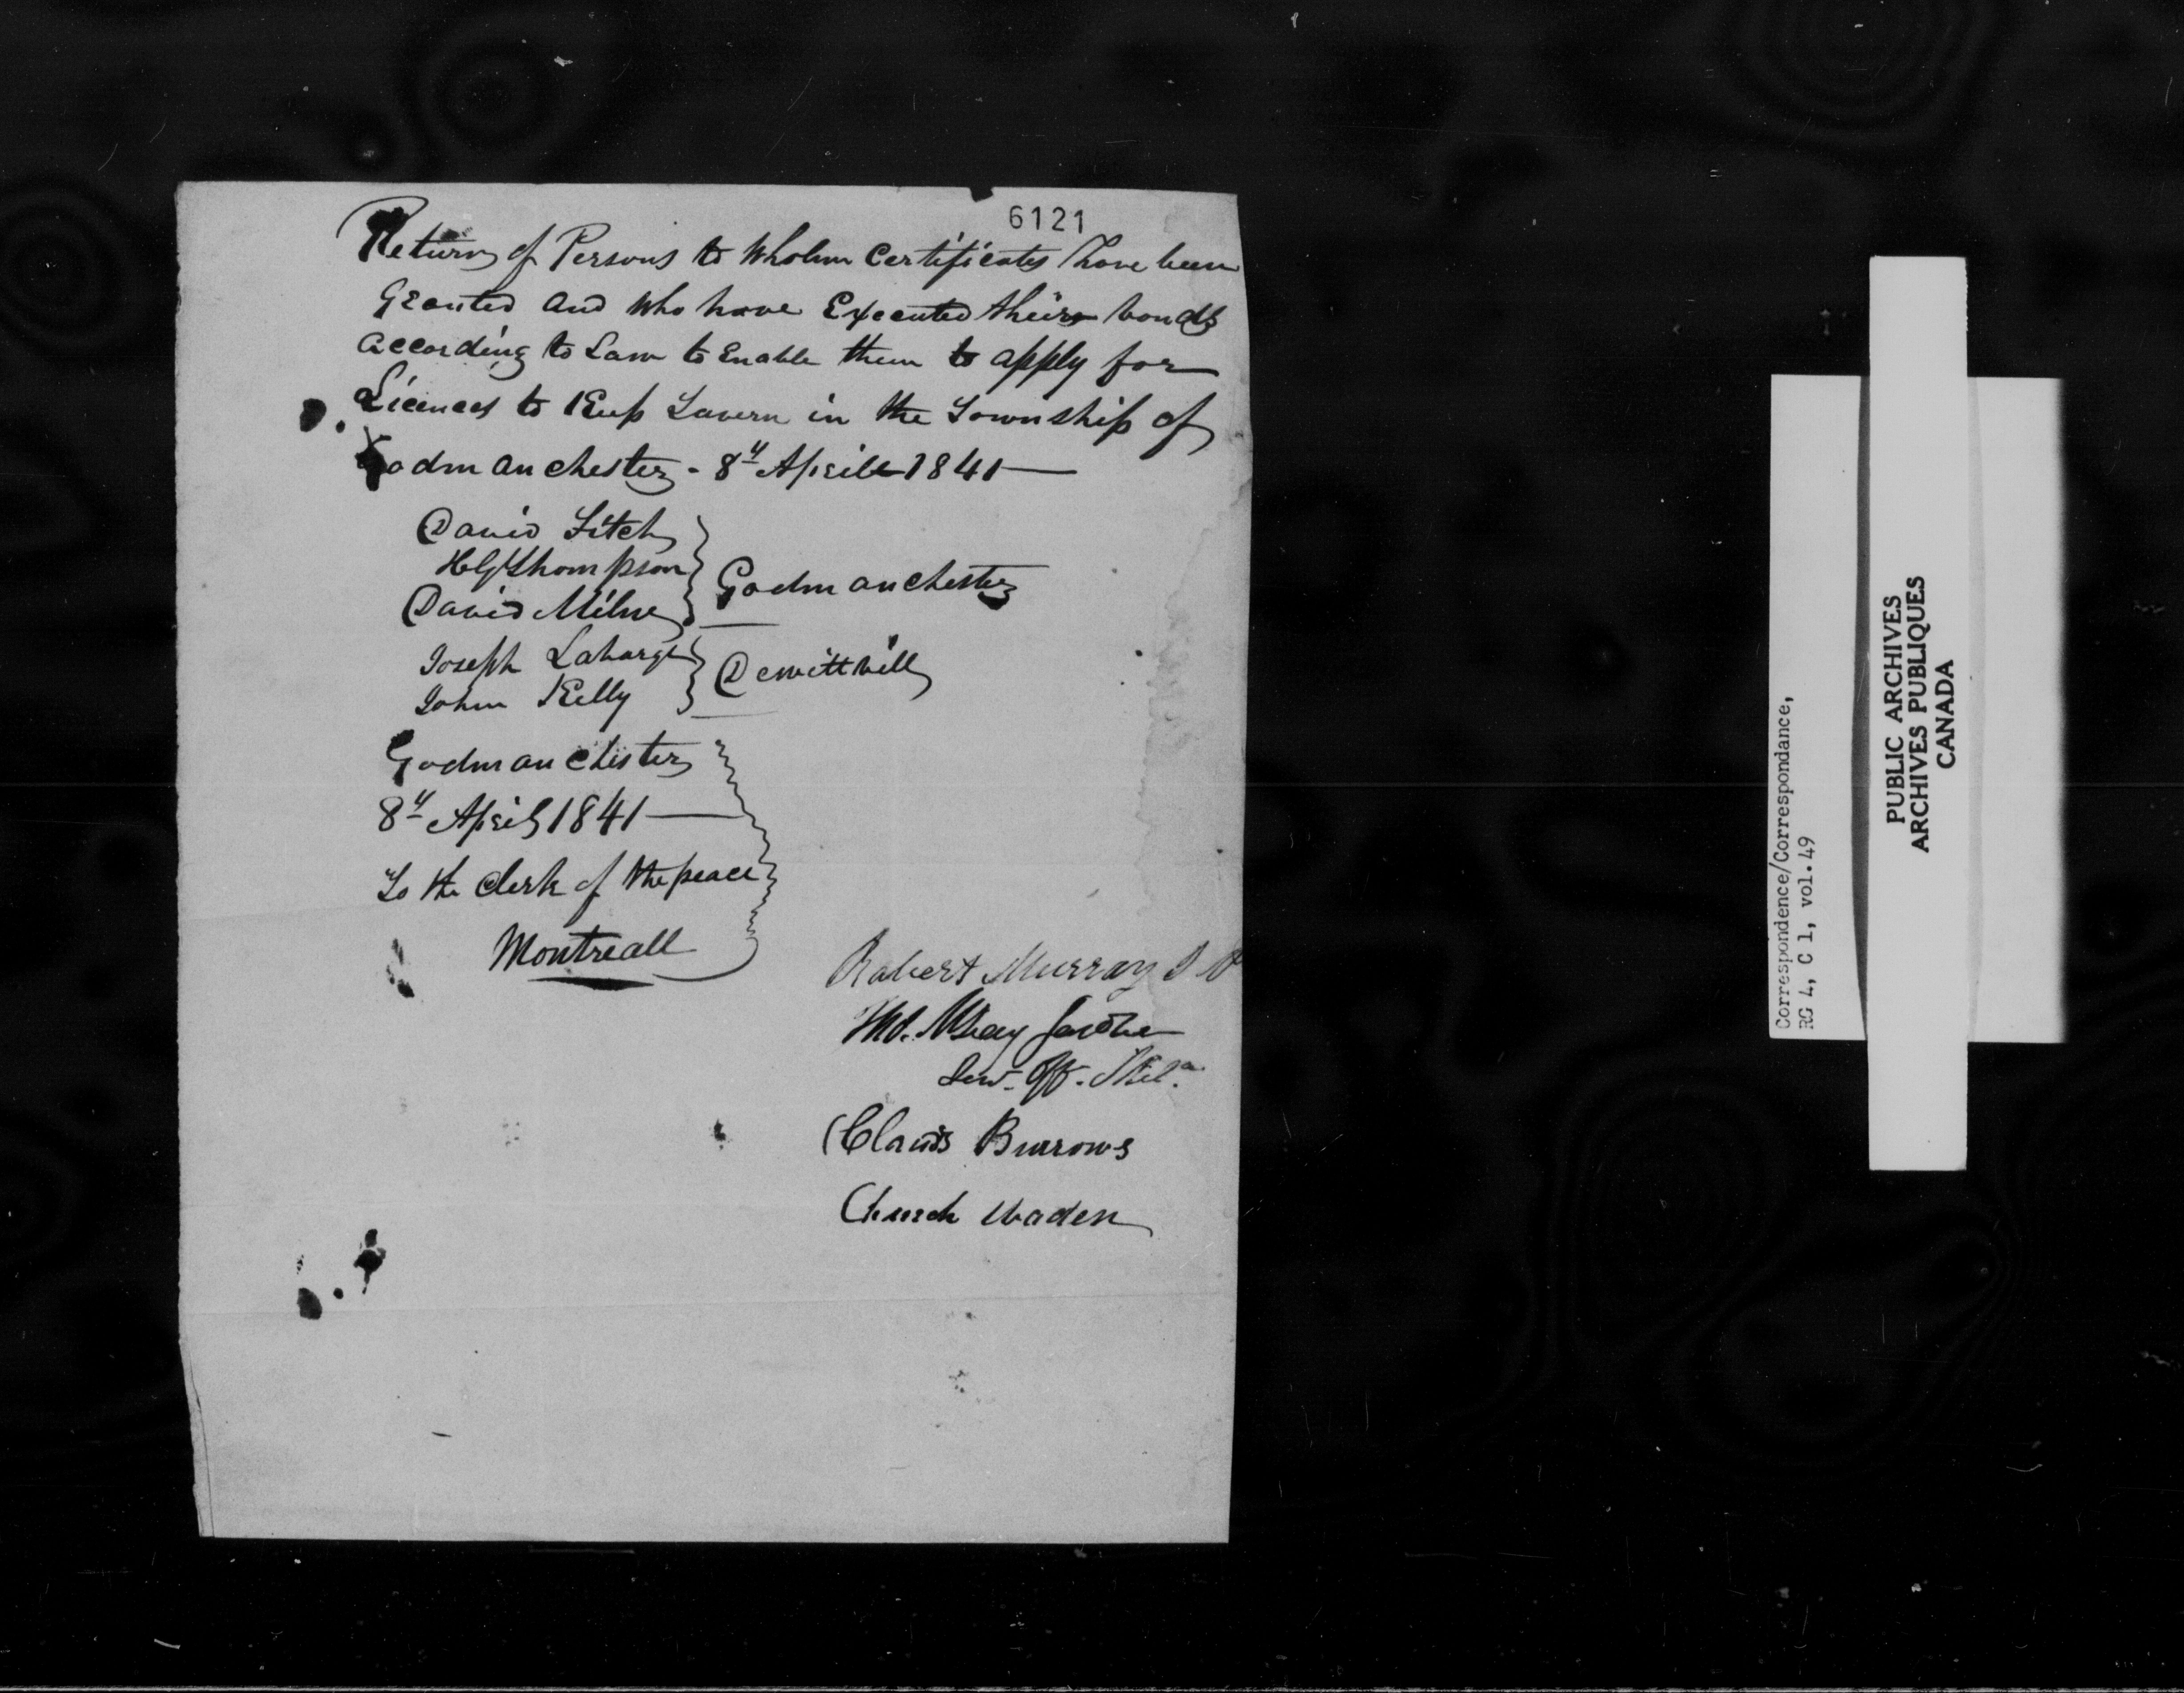 6121
Return of Persons to Wholm Certificates have been
Granted and who have Executed their bonds
According to Law to Enable them to apply for
Licences to Keep Tavern in the Township of
Godmanchester - 8th Aprill 1841
David Fitch
H G Thompson
David Milne
Godmanchester
Joseph Labarge
John Kelly
Dewittvill
Godmanchester
8th April 1841
To the Clerk of the peace
Montreall
Robert Murray J P
Sen. Off. Mila.
Burrows
Church Waden
Correspondence/Correspondance,
RG 4, C 1, vol. 49
PUBLIC ARCHIVES
ARCHIVES PUBLIQUES
CANADA